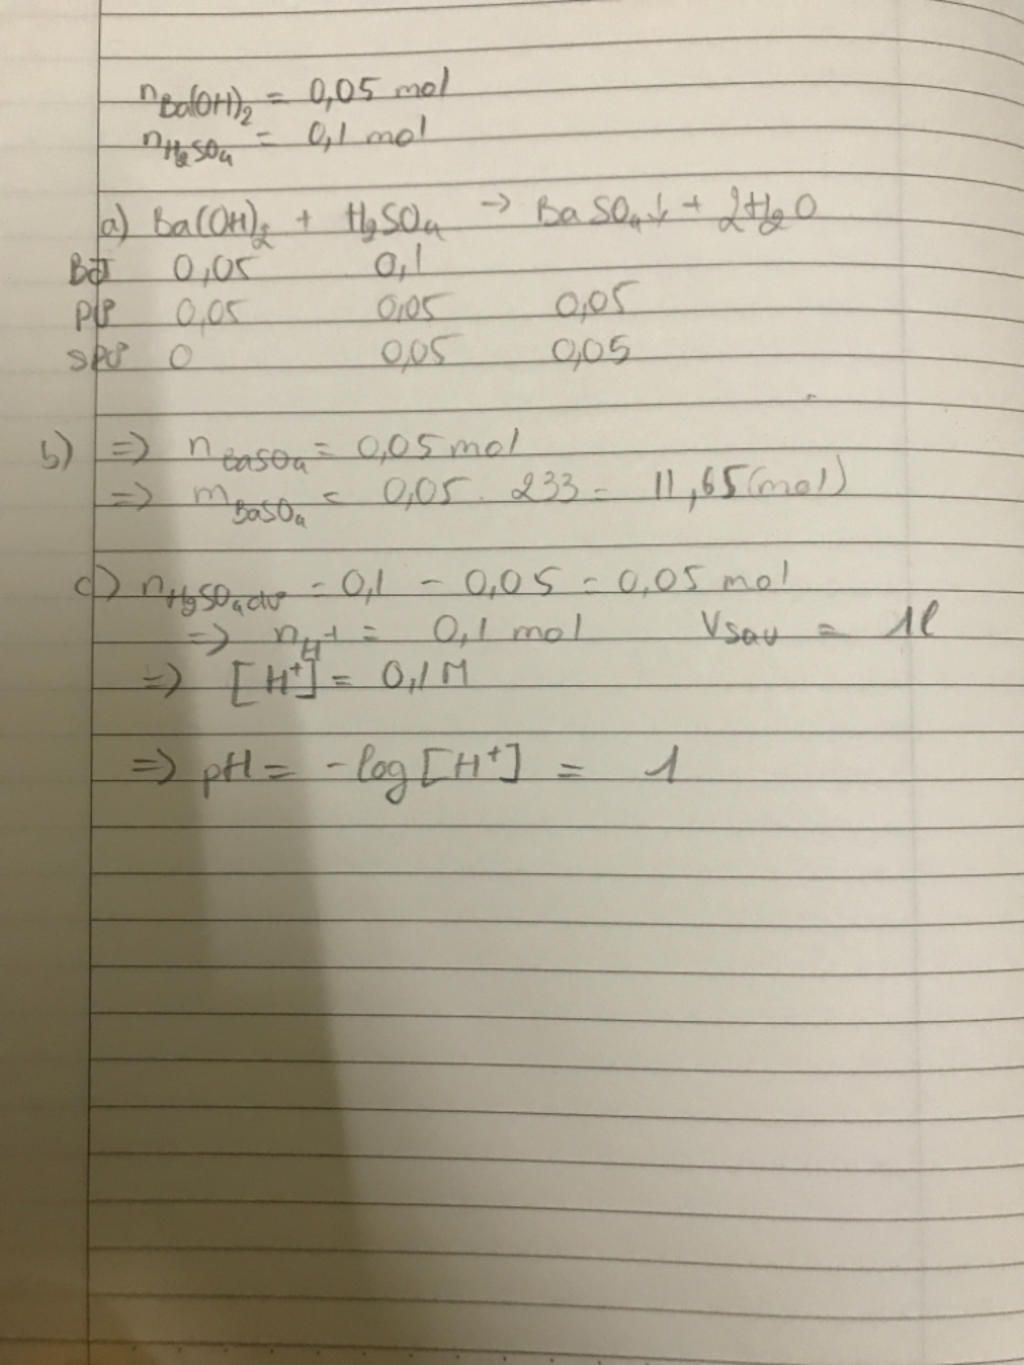 nBa(OH)2 = 0,05 mol
nH2SO4 = 0,1 mol
a) Ba(OH)2 + H2SO4 → BaSO4↓ + 2H2O
Bđ 0,05 0,1
PƯ 0,05 0,05 0,05
SPƯ 0 0,05 0,05
b) => nBaSO4 = 0,05 mol
=> mBaSO4 = 0,05 . 233 = 11,65 (mol)
c) nH2SO4 dư = 0,1 - 0,05 = 0,05 mol
=> nH+ = 0,1 mol Vsau = 1l
=> [H+] = 0,1 M
=> pH = -log[H+] = 1